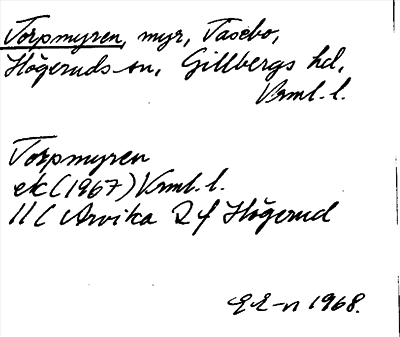 Torpmyren, myr, Tasebo,
Högeruds sn, Gillbergs hd,
Vrml. l.
Torpmyren
ek (1967) Vrml. l.
11C Arvika 2f Högerud
E E-n 1968.